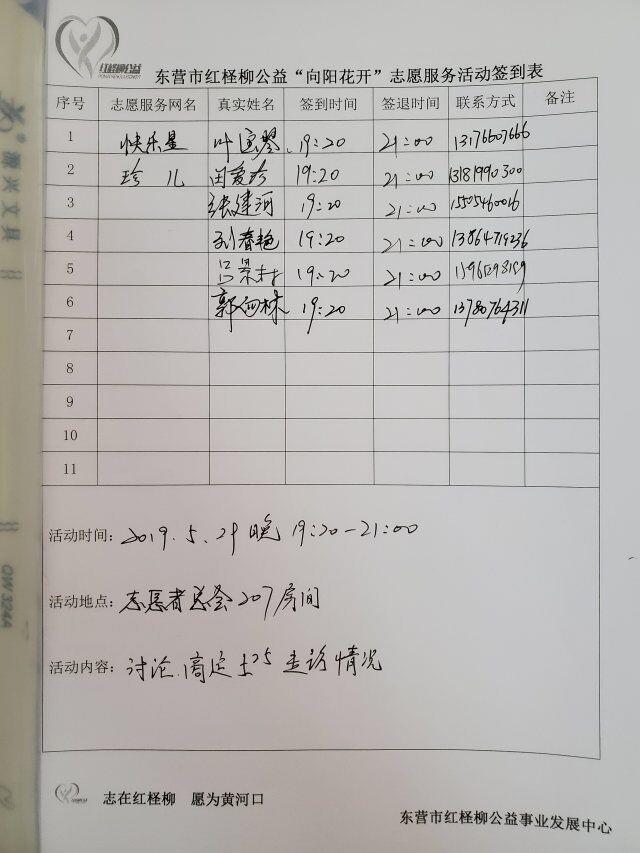 红柽柳公益
东营市红柽柳公益“向阳花开”志愿服务活动签到表
序号 志愿服务网名 真实姓名 签到时间 签退时间 联系方式 备注
1 快乐星 19:20 21:00 13176607666
2 珍儿 闫爱珍 19:20 21:00 13181990300
3 张建河 19:20 21:00 15505460016
4 刘春艳 19:20 21:00 13864719236
5 吕景村 19:20 21:00
6 郭 林 19:20 21:00 13780764311
7
8
9
10
11
活动时间: 2019.5.29 晚 19:20-21:00
活动地点: 志愿者总会207房间
活动内容: 讨论、商定 走访情况
志在红柽柳 愿为黄河口
东营市红柽柳公益事业发展中心
源兴文具
QW 324A